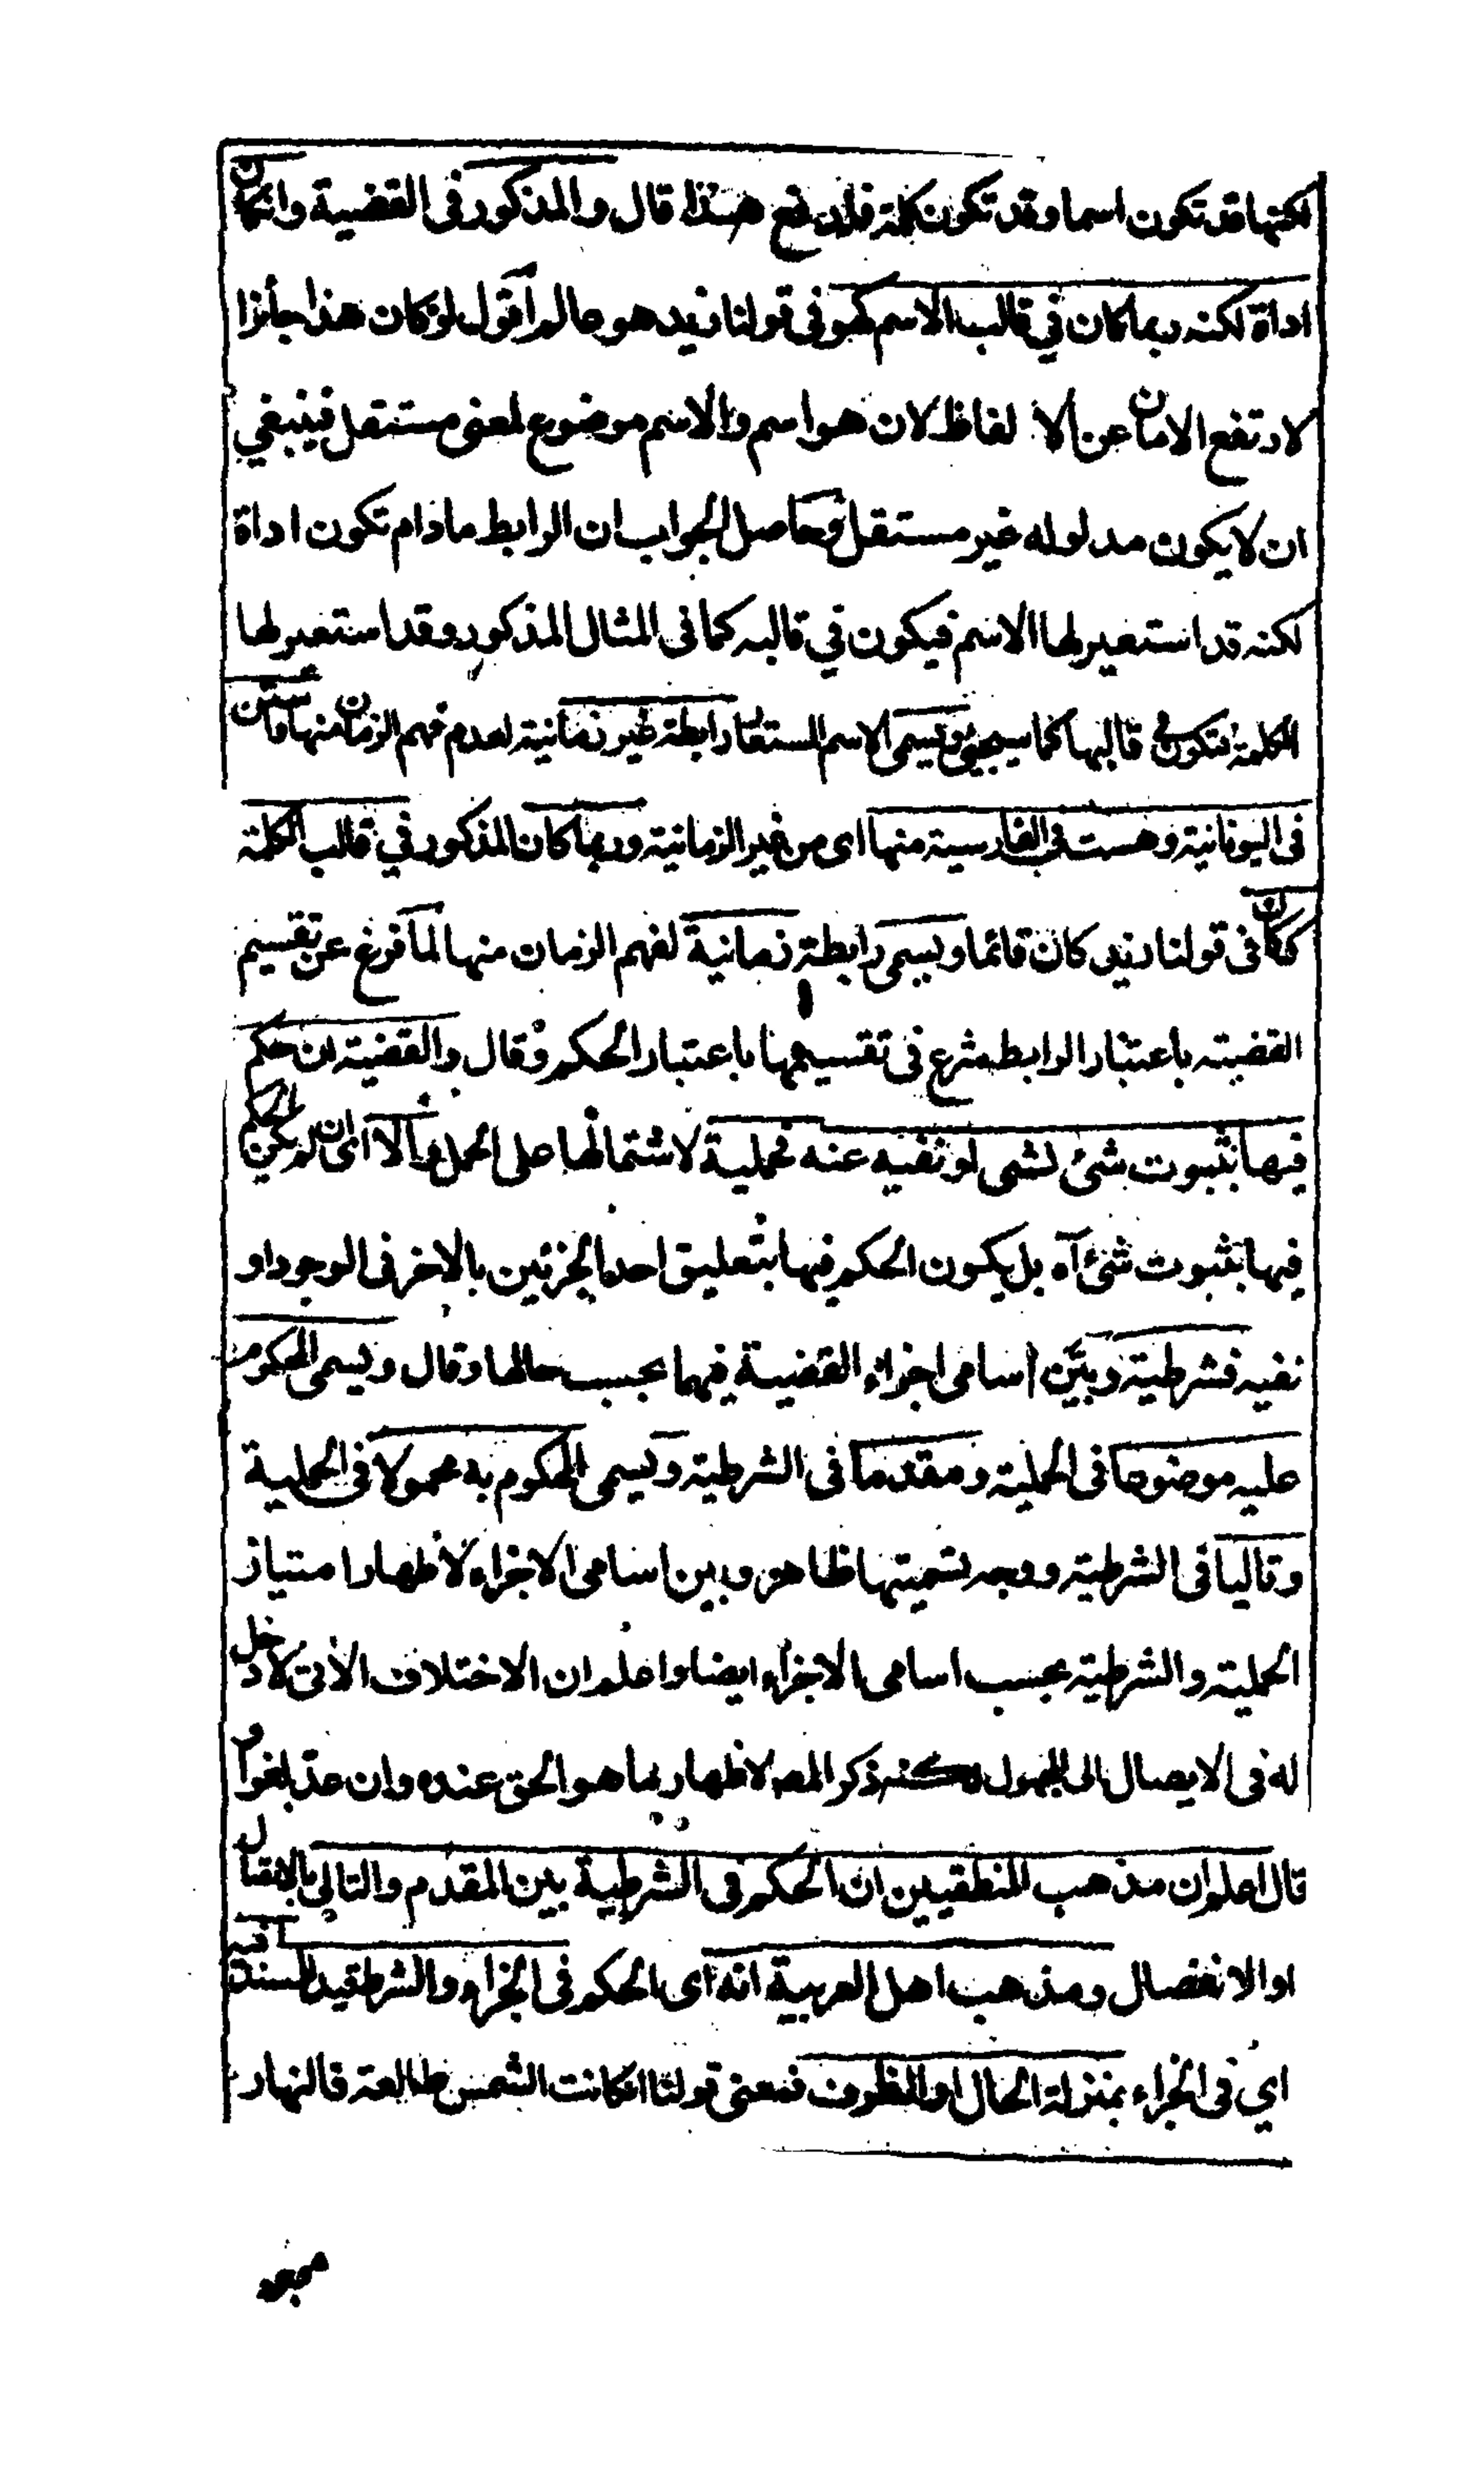 لكنها قد تكون اسما وقد تكون كلمة فلدفع هذا قال والمذكور فى القضية وانكان
اداة لكنه ربما كان في قالب الاسم كهو فى قولنا زيد هو عالم اقول لو كان هذا جائزا
لارتفع الامان عن الا لفاظ لان هو اسم والاسم موضوع لمعنى مستقل فينبغي
ان لا يكون مدلوله غير مستقل وحاصل الجواب ان الرابط مادام تكون اداة
لكنه قد استعير لها الاسم فيكون في قالبه كما فى المثال المذكور وقد استعير لها
الكلمة فتكون في قالبها كما سيجئ ويسمى الاسم المستعار رابطة غير زمانية لعدم فهم الزمان منها واستن
فى اليونانية وهست فى الفارسية منها اى من غير الزمانية وربما كان المذكور في قالب الكلمة
ككان فى قولنا زيد كان قائما ويسمى رابطة زمانية لفهم الزمان منها لما فرغ عن تقسيم
القضية باعتبار الرابط شرع فى تقسيمها باعتبار الحكم وقال والقضية ان حكم
فيها بثبوت شئ لشى او نفيه عنه فحملية لاشتمالها على الحمل والا اى ان لم يكن الحكم
فيها بثبوت شئ آه بل يكون الحكم فيها بتعليق احد الجزئين بالاخر فى الوجود او
نفيه فشرطية وبيّن اسامى اجزاء القضية فيهما بحسب حالها وقال ويسمى المحكوم
عليه موضوعا فى الحملية ومقدما فى الشرطية ويسمى المحكوم به محمولا فى الحملية
وتاليا فى الشرطية ووجه تسميتها ظاهر وبين اسامى الاجزاء لاظهار امتياز
الحملية والشرطية بحسب اسامى الاجزاء ايضا واعلم ان الاختلاف الاتى لا دخل
له فى الايصال الى المجهول لكنه ذكر المصـ لاظهار بما هو الحق عنده وان عدّ لغوا و
قال اعلم ان مذهب المنطقيين ان الحكم فى الشرطية بين المقدم والتالى بالاتصال
او الانفصال ومذهب اهل العربية انه اى الحكم فى الجزاء والشرط قيد المسند فيه
اي فى الجزاء بمنزلة الحال او الظرف فمعنى قولنا انكانت الشمس طالعة فالنهار